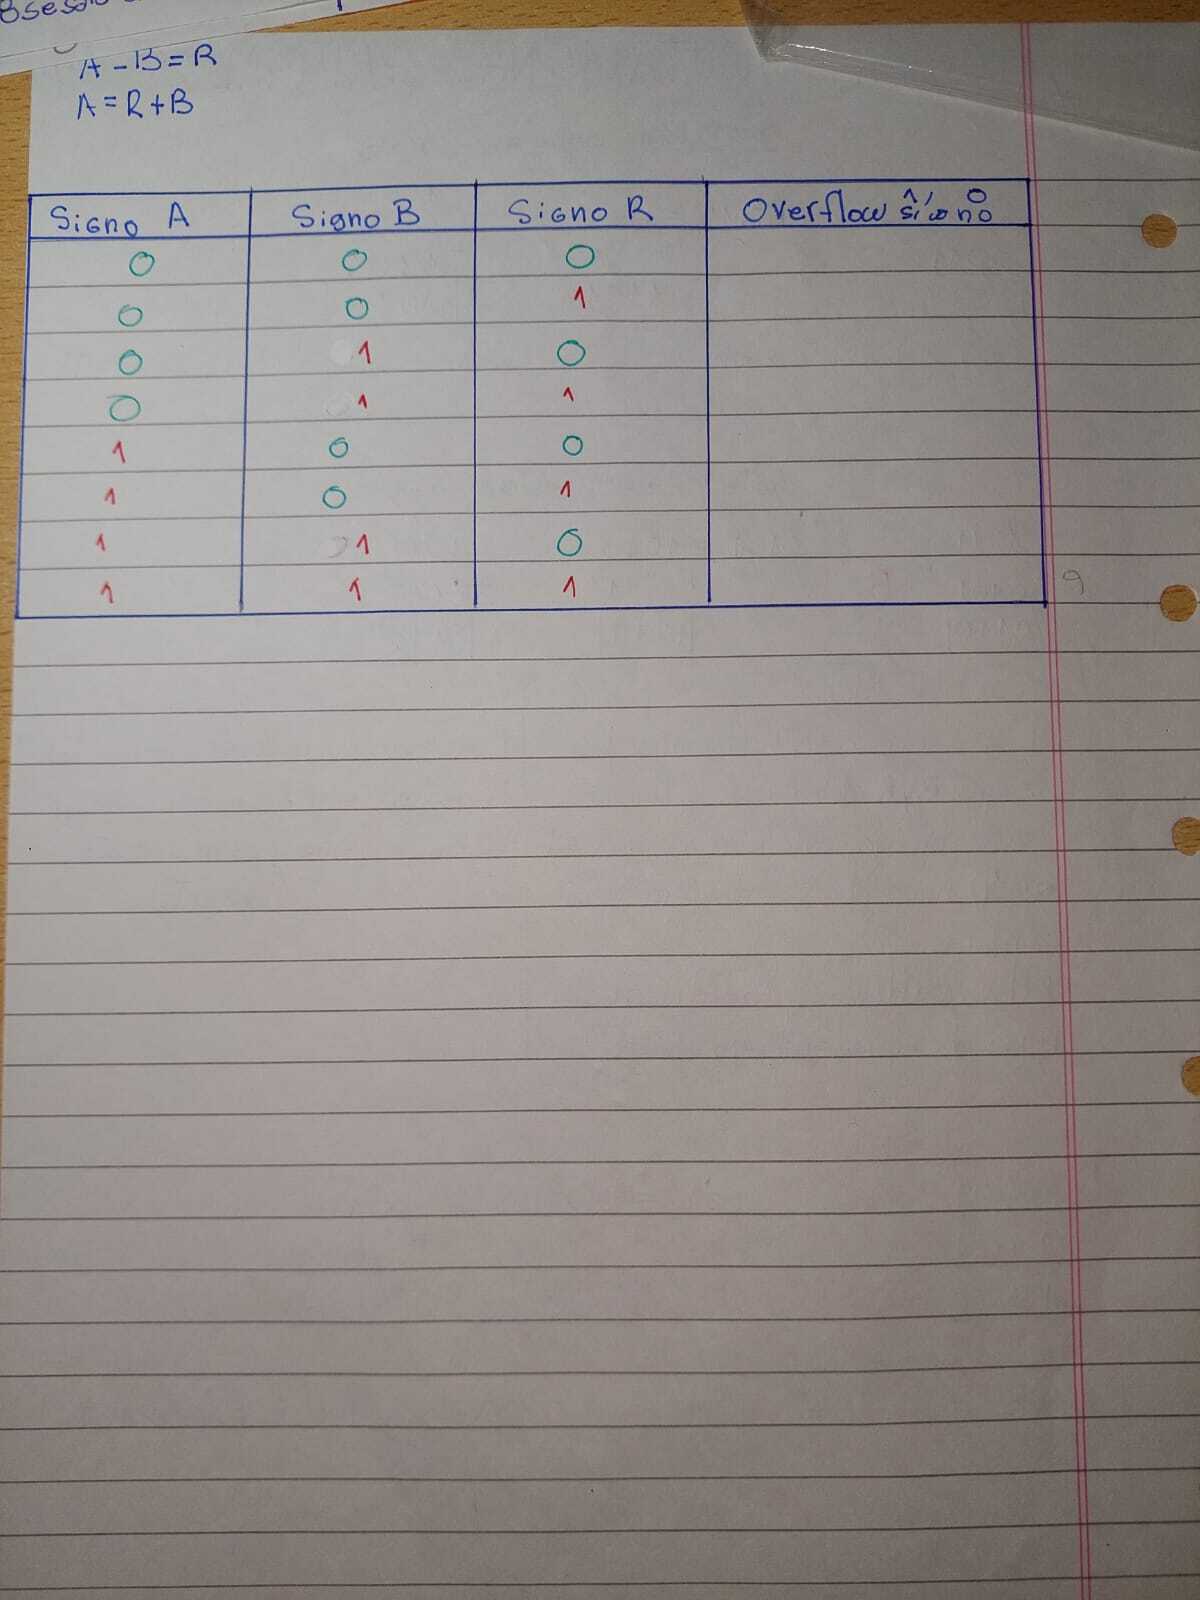 A - B = R
A = R + B
Signo A Signo B Signo R Overflow sí o no
1 0
0 0 0
0 0 1
0 1 0
0 1 1
1 0 0
1 0 1
1 1 0
1 1 1
9